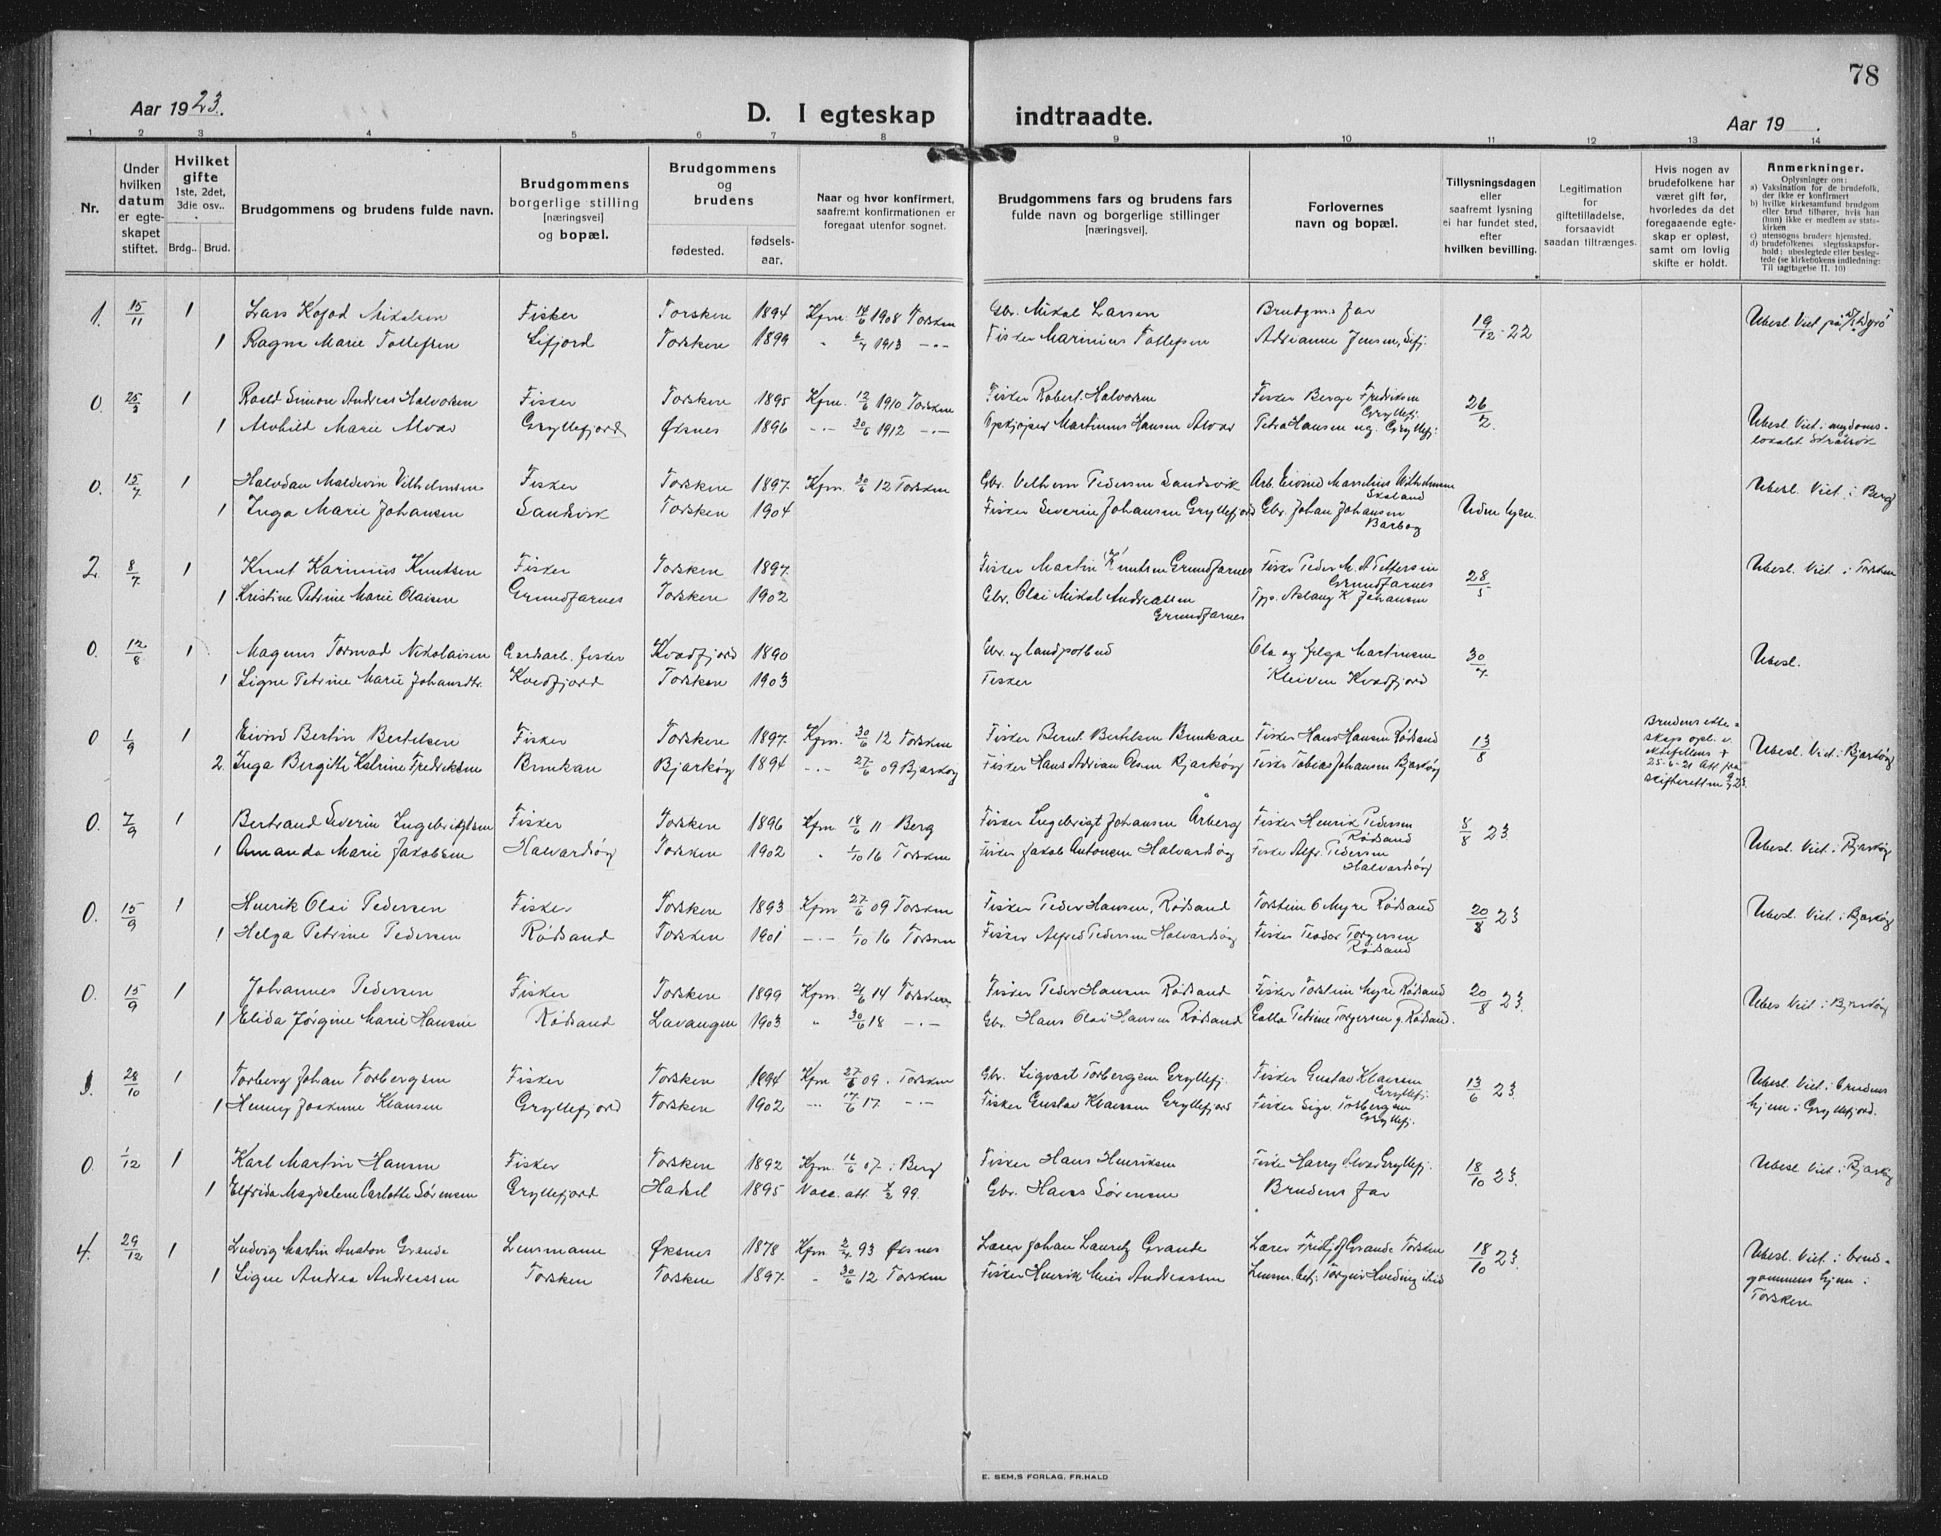 78
Aar 1923.
D. I egteskap indtraadte.
Aar 19 .
1 2 3 4 5 6 7 8 9 10 11 12 13 14
Nr.
Under hvilken datum er egteskapet stiftet.
Hvilket gifte 1ste, 2det, 3die osv..
Brdg.. Brud.
Brudgommens og brudens fulde navn.
Brudgommens borgerlige stilling [næringsvei] og bopæl.
Brudgommens og brudens
fødested.
fødsels-aar.
Naar og hvor konfirmert, saafremt konfirmationen er foregaat utenfor sognet.
Brudgommens fars og brudens fars fulde navn og borgerlige stillinger [næringsvei].
Forlovernes navn og bopæl.
Tillysningsdagen eller saafremt lysning ei har fundet sted, efter hvilken bevilling.
Legitimation for giftetilladelse, forsaavidt saadan tiltrænges.
Hvis nogen av brudefolkene har været gift før, hvorledes da det foregaaende egteskap er opløst, samt om lovlig skifte er holdt.
Anmerkninger.
Oplysninger om:
a) Vaksination for de brudefolk, der ikke er konfirmert
b) hvilke kirkesamfund brudgom eller brud tilhører, hvis han (hun) ikke er medlem av statskirken
c) utensogns bruders hjemsted.
d) brudefolkenes slegtsskapsforhold; ubeslegtede eller beslegtede (se kirkebokens indledning: Til iagttagelse II. 10)
1. 15/11 1 Lars Kofod Mikalsen Fisker Torsken 1894 Kfm. 1908 Torsken Gbr. Mikal Larsen Brudgms far 19/12-22 Ubesl. Viet på
1 Ragna Marie Tollefsen Lifjord Torsken 1899 " 1913 -"- Fisker Marinius Tollefsen Adrianne Jensen, Lifj.
0. 25/3 1 Roald Simon Andreas Halvorsen Fisker Torsken 1895 Kfm. 12/6 1910 Torsken Fisker Robert Halvorsen Fisker Berge Fredriksen Gryllefj. 26/2. Ubesl. Viet i
1 Alvhild Marie Alvær Gryllefjord Øksnes 1896 -"- 30/6 1912 -"- Opkjøper Martinus Hansen Alvær Petra Hansen ug. Gryllefj.
0. 15/7 1 Halvdan Maldevin Vilhelmsen Fisker Torsken 1897 Kfm. 30/6 12 Torsken Gbr. Vilhelm Pedersen Sandsvik Arb. Eivind Marselius Wilhelmsen Skaland Uden lysn. Ubesl. Viet i Berg
1 Inga Marie Johansen Sandsvik Torsken 1904 Fisker Severin Johansen Gryllefjord Gbr. Johan Johansen Barbog
2. 8/7 1 Knut Karinius Knutsen Fisker Torsken 1897 Fisker Martin Knutsen Grundfarnes Fisker Peder M. A. Pettersen Grundfarnes 28/5 Ubesl. Viet i Torsken
1 Kristine Petrine Marie Olaisen Grundfarnes Torsken 1902 Gbr. Olai Mikal Andreassen Grundfarnes Tpp. Aslaug K Johansen
0. 12/8 1 Magnus Tormod Nikolaisen Gardsarb. fisker Kvædfjord 1890 Gbr. og landpostbud Ola og Helga Martinsen 30/7 Ubesl.
1 Signe Petrine Marie Johansdtr. Kvædfjord Torsken 1903 Fisker Kleiven Kvædfjord
0 1/9 1 Eivind Bertin Bertelsen Fisker Torsken 1897 Kfm. 30/6 12 Torsken Fisker Bernt Bertelsen Brunkan Fisker Hans Hansen Rødsand 13/8 Brudens ekteskaps opl. v. ektefellens + 25-6-21 Att. fra skifteretten Ubesl. Viet i Bjarkøy
2 Inga Bergitte Katrine Fredriksen Brunkan Bjarkøy 1894 -"- 27/6 09 Bjarkøy Fisker Hans Adrian Olsen Bjarkøy Fisker Tobias Johansen Bjarkøy
0. 7/9 1 Bertrand Severin Ingebrigtsen Fisker Torsken 1896 Kfm 18/6 11 Berg Fisker Ingebrigt Johansen Årberg Fisker Henrik Pedersen Rødsand 8/8 23. Ubesl. Viet i Bjarkøy
1 Amanda Marie Jakobsen Halvardsøy Torsken 1902 " 1/10 16 Torsken Fisker Jakob Antonsen Halvardsøy Fisker Alfr. Pedersen Halvardsøy
0. 15/9 1 Henrik Olai Pedersen Fisker Torsken 1893 Kfm 27/6 09 Torsken Fisker Peder Hansen, Rødsand Torstein O Myre Rødsand 20/8 23 Ubesl. Viet i Bjarkøy
1 Helga Petrine Pedersen Rødsand Torsken 1901 -"- 1/10 16 Torsken Fisker Alfred Pedersen Halvardsøy Fisker Teodor Torgersen Rødsand
0. 15/9 1 Johannes Pedersen Fisker Torsken 1899 Kfm. 21/6 14 Torsken Fisker Peder Hansen Rødsand Fisker Torstein Myre Rødsand 20/8 23. Ubes Viet i Bjarkøy
1 Elida Jørgine Marie Hansen Rødsand Lavangen 1903 " 30/6 18 -"- Gbr. Hans Olai Hansen Rødsand Petrine Torgersen g. Rødsand.
3. 28/10 1 Torberg Johan Torbergsen Fisker Torsken 1894 Kfm 27/6 09. Torsken Gbr. Sigvart Torbergsen Gryllefj. Fisker Gustav Klaussen Gryllefj. 13/6 23. Ubesl. Viet i brudens hjem i Gryllefjord.
1 Henny Jossine Klausen Gryllefjord Torsken 1902 -"- 17/6 17 -"- Fisker Gustav Klaussen Gryllefjord Fisker Sigv. Torbergsen Gryllefj.
0. 1/12 1 Karl Martin Hansen Fisker Torsken 1892 Kfm. 16/6 07 i Berg Fisker Hans Henriksen Fisker Harry Alvær Gryllefj. 18/10 23. Ubesl. Viet i Bjarkøy
1 Elfrida Magdalene Carlotte Sørensen Gryllefjord Hadsel 1895 Vacc. att. 99. Gbr. Hans Sørensen Brudens far
4. 29/12 1 Ludvig Martin Anaton Grande Lensmann Øksnes 1878 Kfm 2/4 93 Øksnes Lærer Johan Lauritz Grande Lærer Fridtjof Grande Torsken 18/10 23. Ubesl. Viet i brudgommens hjem i Torsken
1 Signe Andrea Andreassen Torsken Torsken 1897 " 30/6 12 Torsken Fisker Henrik Meier Andreassen Lensm. betj. Torgeir Hveding ibid
E. SEM,S FORLAG, FR.HALD